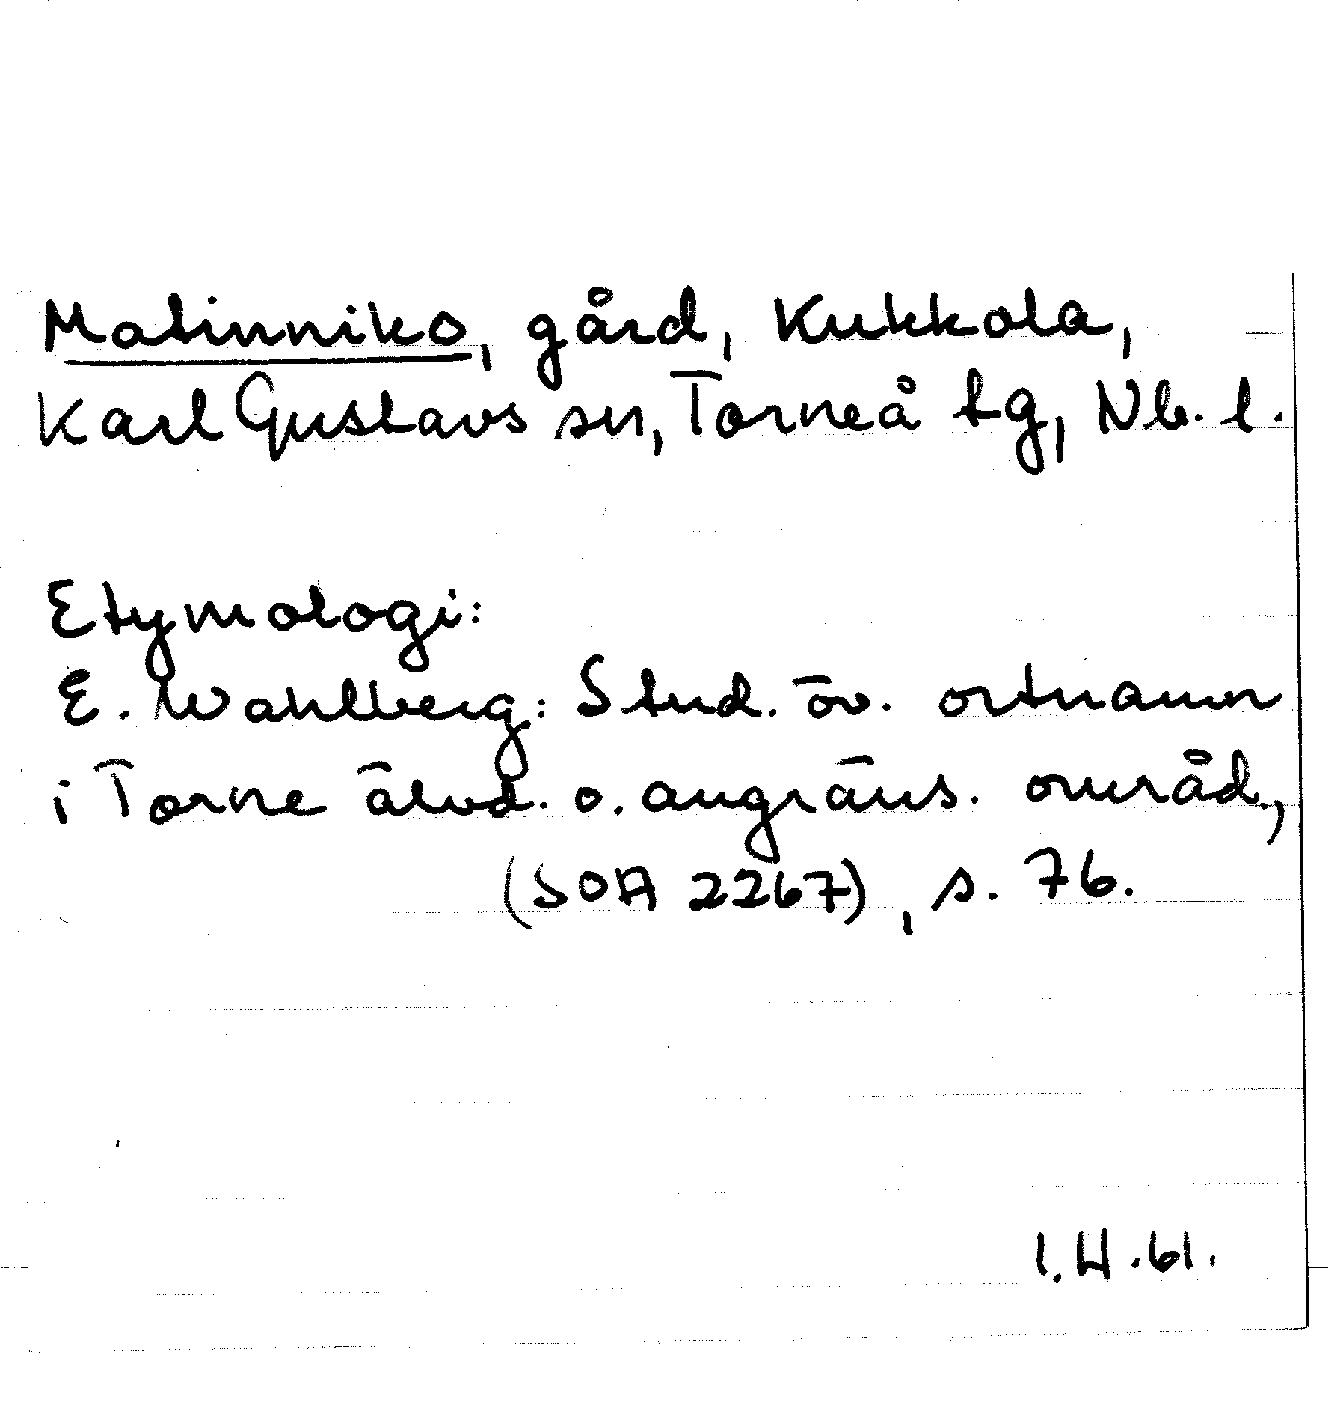 Matinniko, gård, Kukkola,
Karl Gustavs sn, Torneå tg, Nb. l.
Etymologi:
E. Wahlberg: Stud. öv. ortnamn
i Torne älvd. o. angräns. områd.,
(SOA 2267), s. 76.
I.H.61.